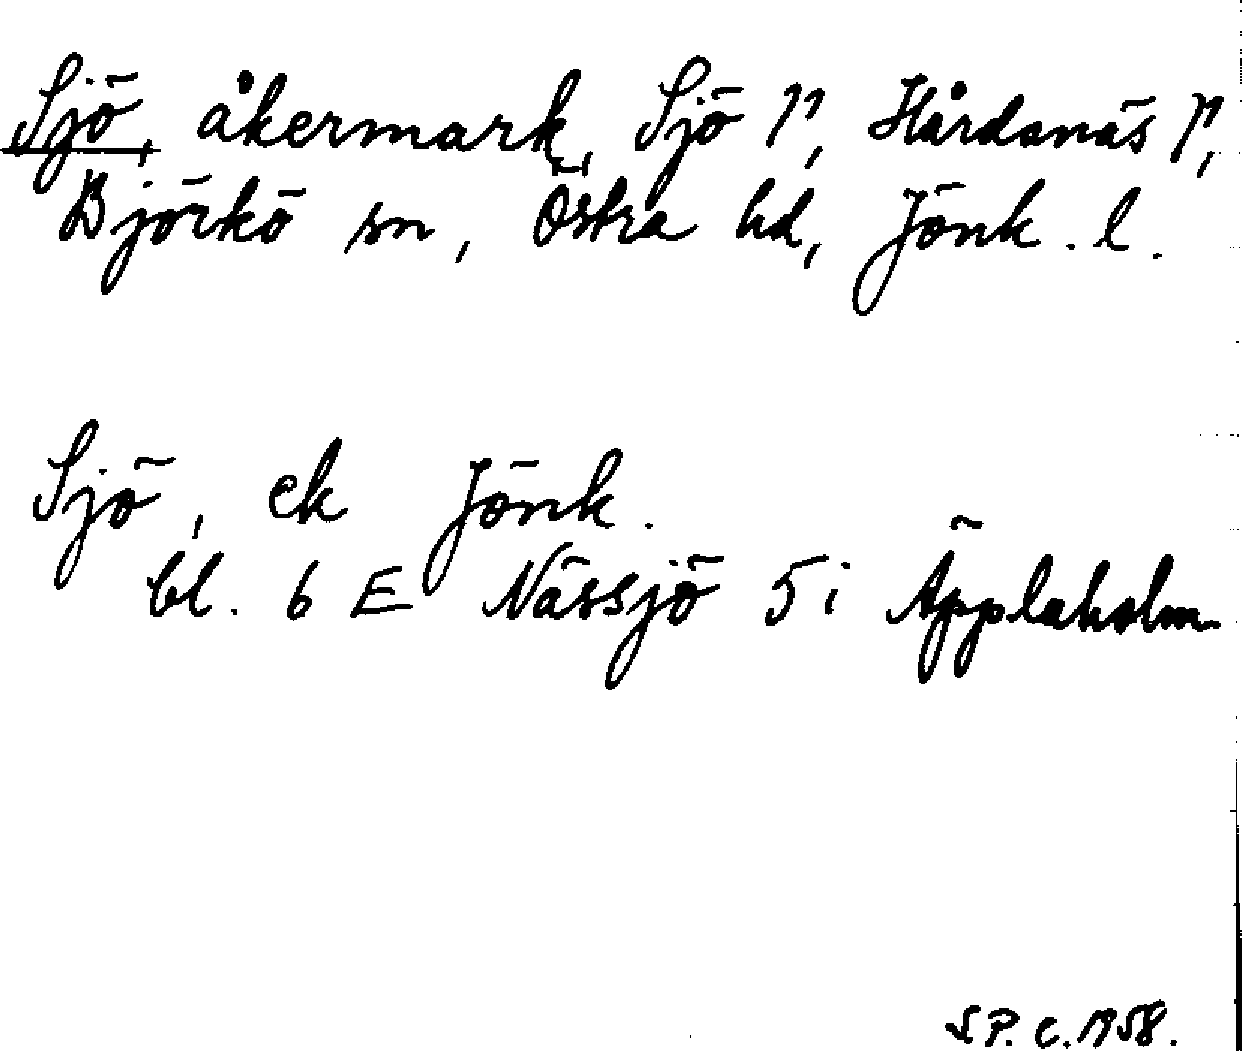 Sjö, åkermark, Sjö P, Hårdanäs P,
Björkö sn, Östra hd, Jönk. l.
Sjö, ek Jönk.
bl. 6 E Nässjö 5 i Äpplaholm
S.P.C. 1958.